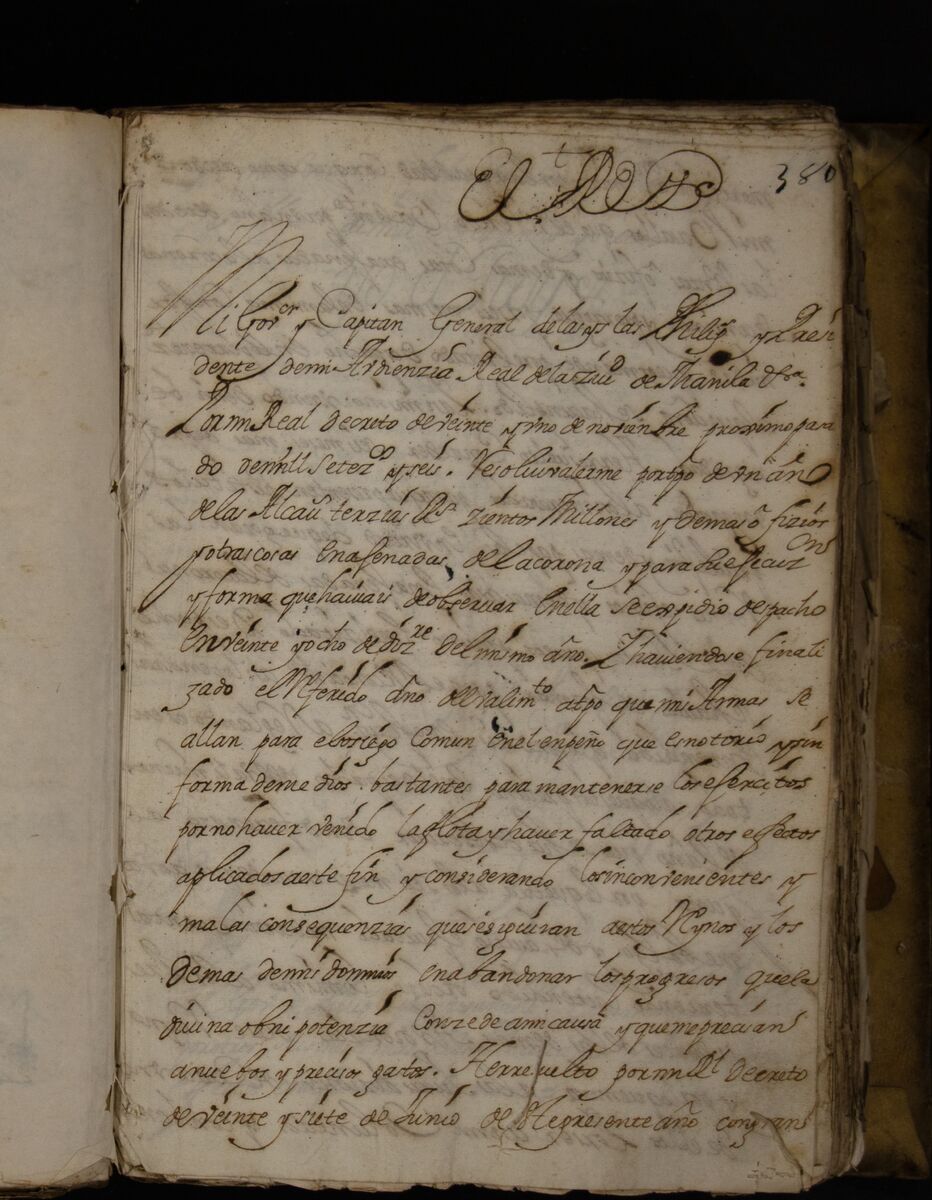 380
El Rey
Mi Gov.or y Capitan General de las yslas Philip.s y Presi
dente de mi Audienzia Real de la Ziu.d de Manila
Por mi Real Decreto de veinte y uno de noviembre proximo pasa
do de mill setez.os y seis. Resolui valerme por tpo de un año
de las Alcau.s terzias R.s Zientos Millones y demas ofizios
y otras cosas enagenadas de la corona y para su
y forma que hauiais de obseruar en ella se expidio despacho
en veinte y ocho de diz.re del mismo año. Y hauiendose finali
zado el Referido año del valim.to a tpo que mis Armas se
allan para el sosiego comun en el enpeño que es notorio y sin
forma de medios bastantes para mantenerse los esercitos
por no hauer venido la flota y hauer faltado otros efectos
aplicados a este fin y considerando los inconvenientes y
malas consequenzias que se siguiran a estos Reynos y los
demas de mis dominios en abandonar los progresos que la
diuina obnipotenzia conzede a mi causa y que me precisan
a nuebos y precisos gastos. He rresuelto por mi R.l Decreto
de veinte y siete de Junio de este presente año con gran